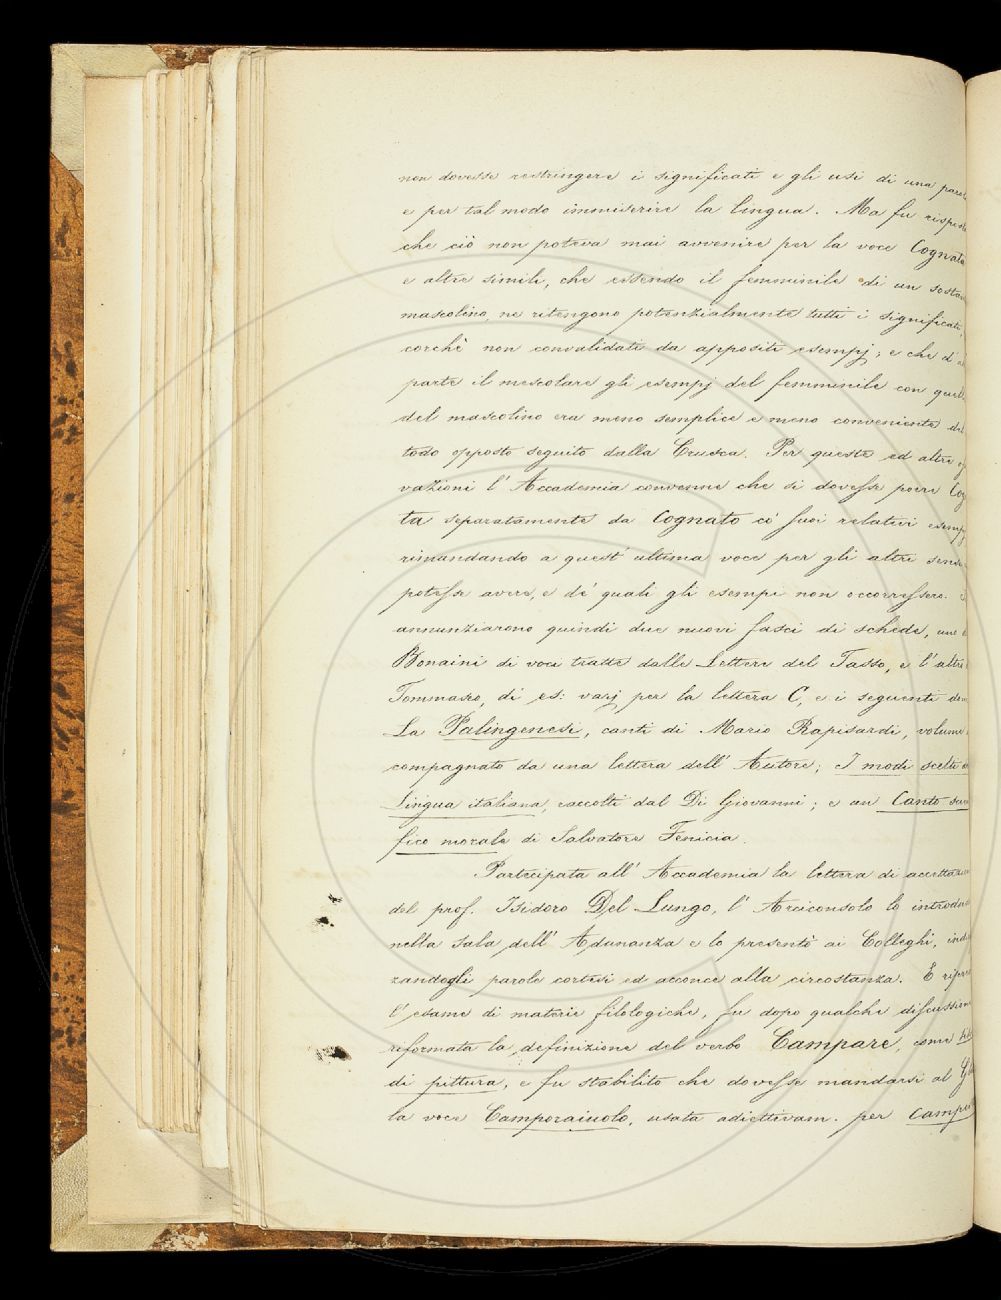 non dovesse restringere i significati e gli usi di una parol
e per tal modo immiserire la lingua. Ma fu rispost
che ciò non poteva mai avvenire per la voce Cognata
e altre simili, che essendo il femminile di un sostan
mascolino, ne ritengono potenzialmente tutti i significati,
corchè non convalidati da appositi esempj; e che d'al
parte il mescolare gli esempj del femminile con quel
del mascolino era meno semplice e meno conveniente del
todo opposto seguito dalla Crusca. Per queste ed altre os
vazioni l'Accademia convenne che si dovesse porre Cog
ta separatamente da Cognato co' suoi relativi esemp
rimandando a quest'ultima voce per gli altri sensi
potesse avere, e de' quali gli esempi non occorressero.
annunziarono quindi due nuovi fasci di schede, uno
Bonaini di voci tratte dalle Lettere del Tasso, e l'altro
Tommaseo, di es: varj per la lettera C, e i seguenti don
La Palingenesi, canti di Mario Rapisardi, volume
compagnato da una lettera dell'Autore; I modi scelti
Lingua italiana, raccolti dal Di Giovanni; e un Canto
fico morale di Salvatore Fenicia.
Partecipata all'Accademia la lettera di accettazion
del prof. Isidoro Del Lungo, l'Arciconsolo lo introdu
nella sala dell'Adunanza e lo presentò ai Colleghi, indi
zandogli parole cortesi ed acconce alla circostanza. E ripre
l'esame di materie filologiche, fu dopo qualche discussion
riformata la definizione del verbo Campare, come
di pittura, e fu stabilito che dovesse mandarsi al
la voce Camporaiuolo, usata adiettivam. per campe